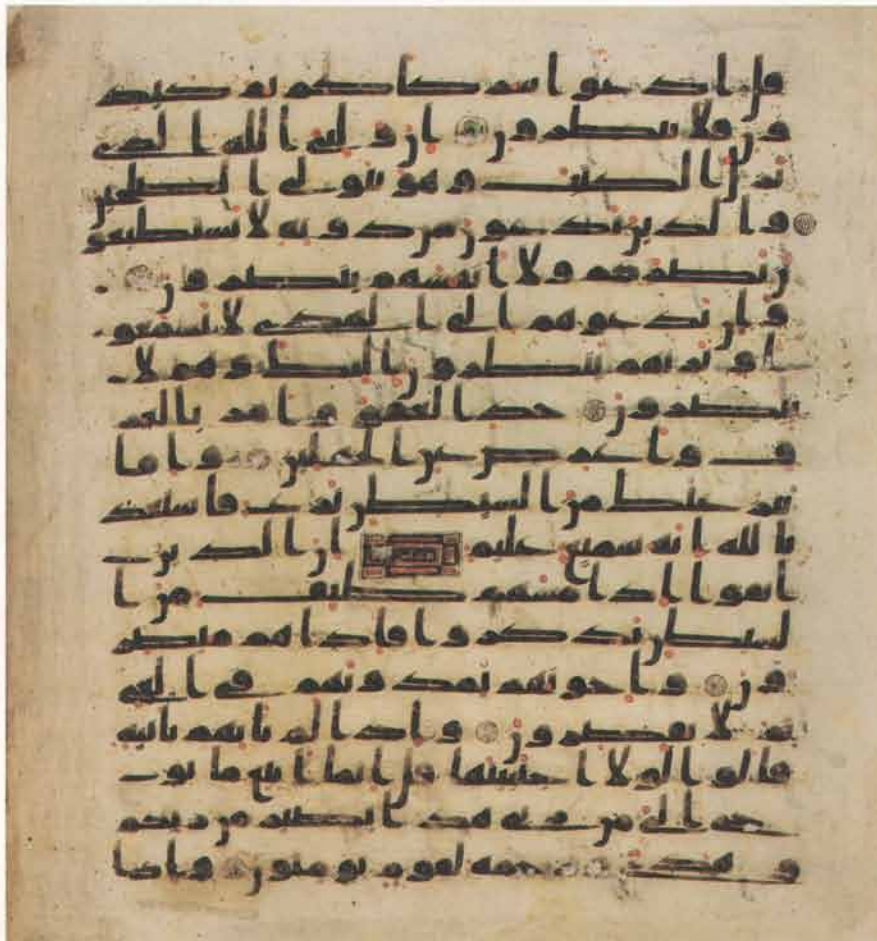 قل ادعوا شركاكم ثم كيد
ون فلا تنظرون ان ولي الله الذي
نزل الكتب وهو يتولى الصلحين
والذين تدعون من دونه لا يستطيعو
ن نصركم ولا انفسهم ينصرون
وان تدعوهم الى الهدى لا يسمعو
ا وتريهم ينظرون اليك وهم لا
يبصرون خذ العفو وامر بالعر
ف واعرض عن الجهلين واما
ينزغنك من الشيطن نزغ فاستعذ
بالله انه سميع عليم ان الذين
اتقوا اذا مسهم طيف من ا
لشيطن تذكروا فاذا هم مبصر
ون واخونهم يمدونهم في الغي
ثم لا يقصرون واذا لم تاتهم باية
قالوا لولا اجتبيتها قل انما اتبع ما يو
حى الي من ربي هذا بصير من ربكم
وهدى ورحمة لقوم يومنون واذا